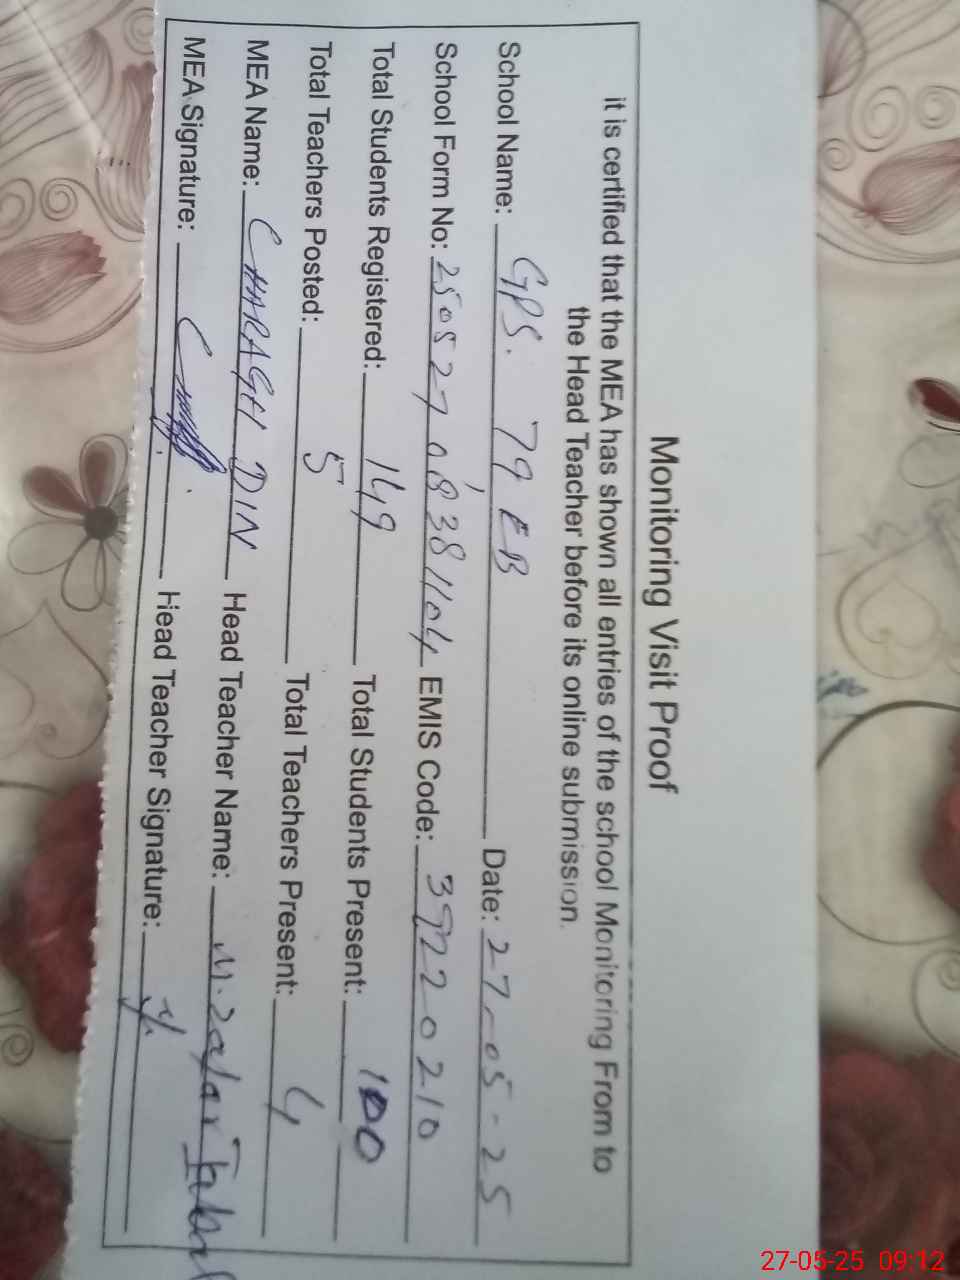 Monitoring Visit Proof
it is certified that the MEA has shown all entries of the school Monitoring From to
the Head Teacher before its online submission.
School Name: GPS. 79 EB Date: 27-05-25
School Form No: 25052708381104 EMIS Code: 39220210
Total Students Registered: 149 Total Students Present: 100
Total Teachers Posted: 5 Total Teachers Present: 4
MEA Name: CHARAGH DIN Head Teacher Name: M. Zafar Iqbal
MEA Signature: Head Teacher Signature:
27-05-25 09:12